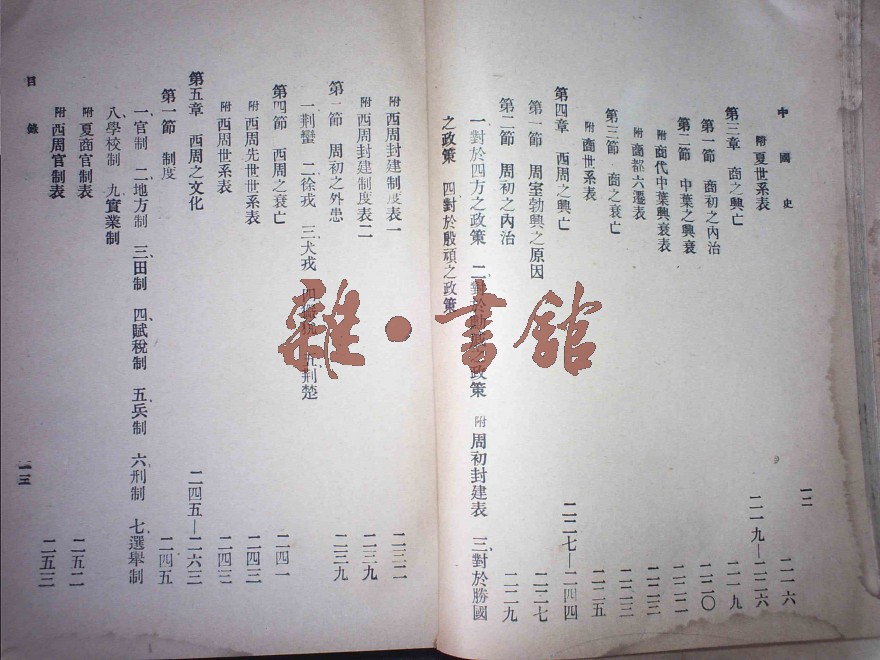 中國史
一二
附夏世系表 二一六
第三章 商之興亡 二一九—二二六
第一節 商初之內治 二一九
第二節 中葉之興衰 二二〇
附商代中葉興衰表 二二二
附商都六遷表 二二三
第三節 商之衰亡 二二三
附商世系表 二二五
第四章 西周之興亡 二二七—二四四
第一節 周室勃興之原因 二二七
第二節 周初之內治 二二九
一對於四方之政策 二對於 之政策 附周初封建表 三對於勝國
之政策 四對於殷頑之政策
附西周封建制度表一 二三二
附西周封建制度表二 二三九
第二節 周初之外患 二三九
一荆蠻 二徐戎 三犬戎 四 五荆楚
第四節 西周之衰亡 二四一
附西周先世世系表 二四三
附西周世系表 二四三
第五章 西周之文化 二四五—二六三
第一節 制度 二四五
一官制 二地方制 三田制 四賦稅制 五兵制 六刑制 七選舉制
八學校制 九實業制
附夏商官制表 二五二
附西周官制表 二五三
目錄
一三
雜·書館